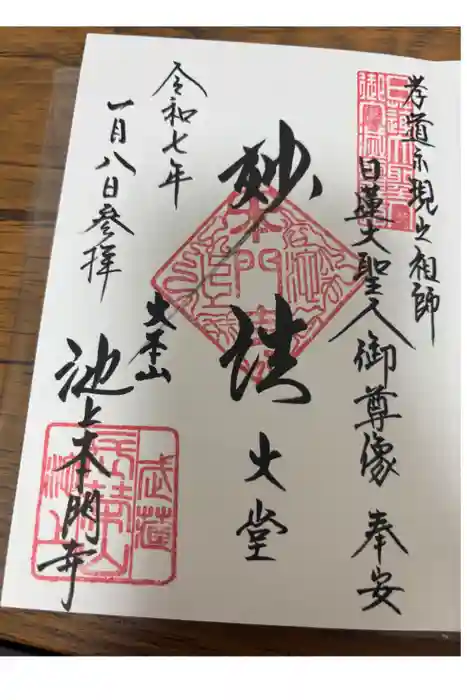 孝道示現之祖師
日蓮大聖人御尊像 奉安
妙法
大堂
令和七年
一月八日参拝
大本山
池上本門寺